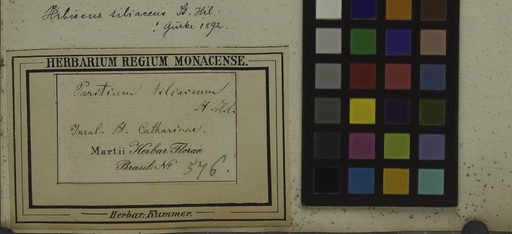 Hibiscus tiliaceus St. Hil.
! Gürke 1892.
HERBARIUM REGIUM MONACENSE.
Paritium tiliaceum
St. Hil.
Insul. St. Catharinae.
Martii Herbar. Florae
Brasil. No 576.
Herbar. Kummer.